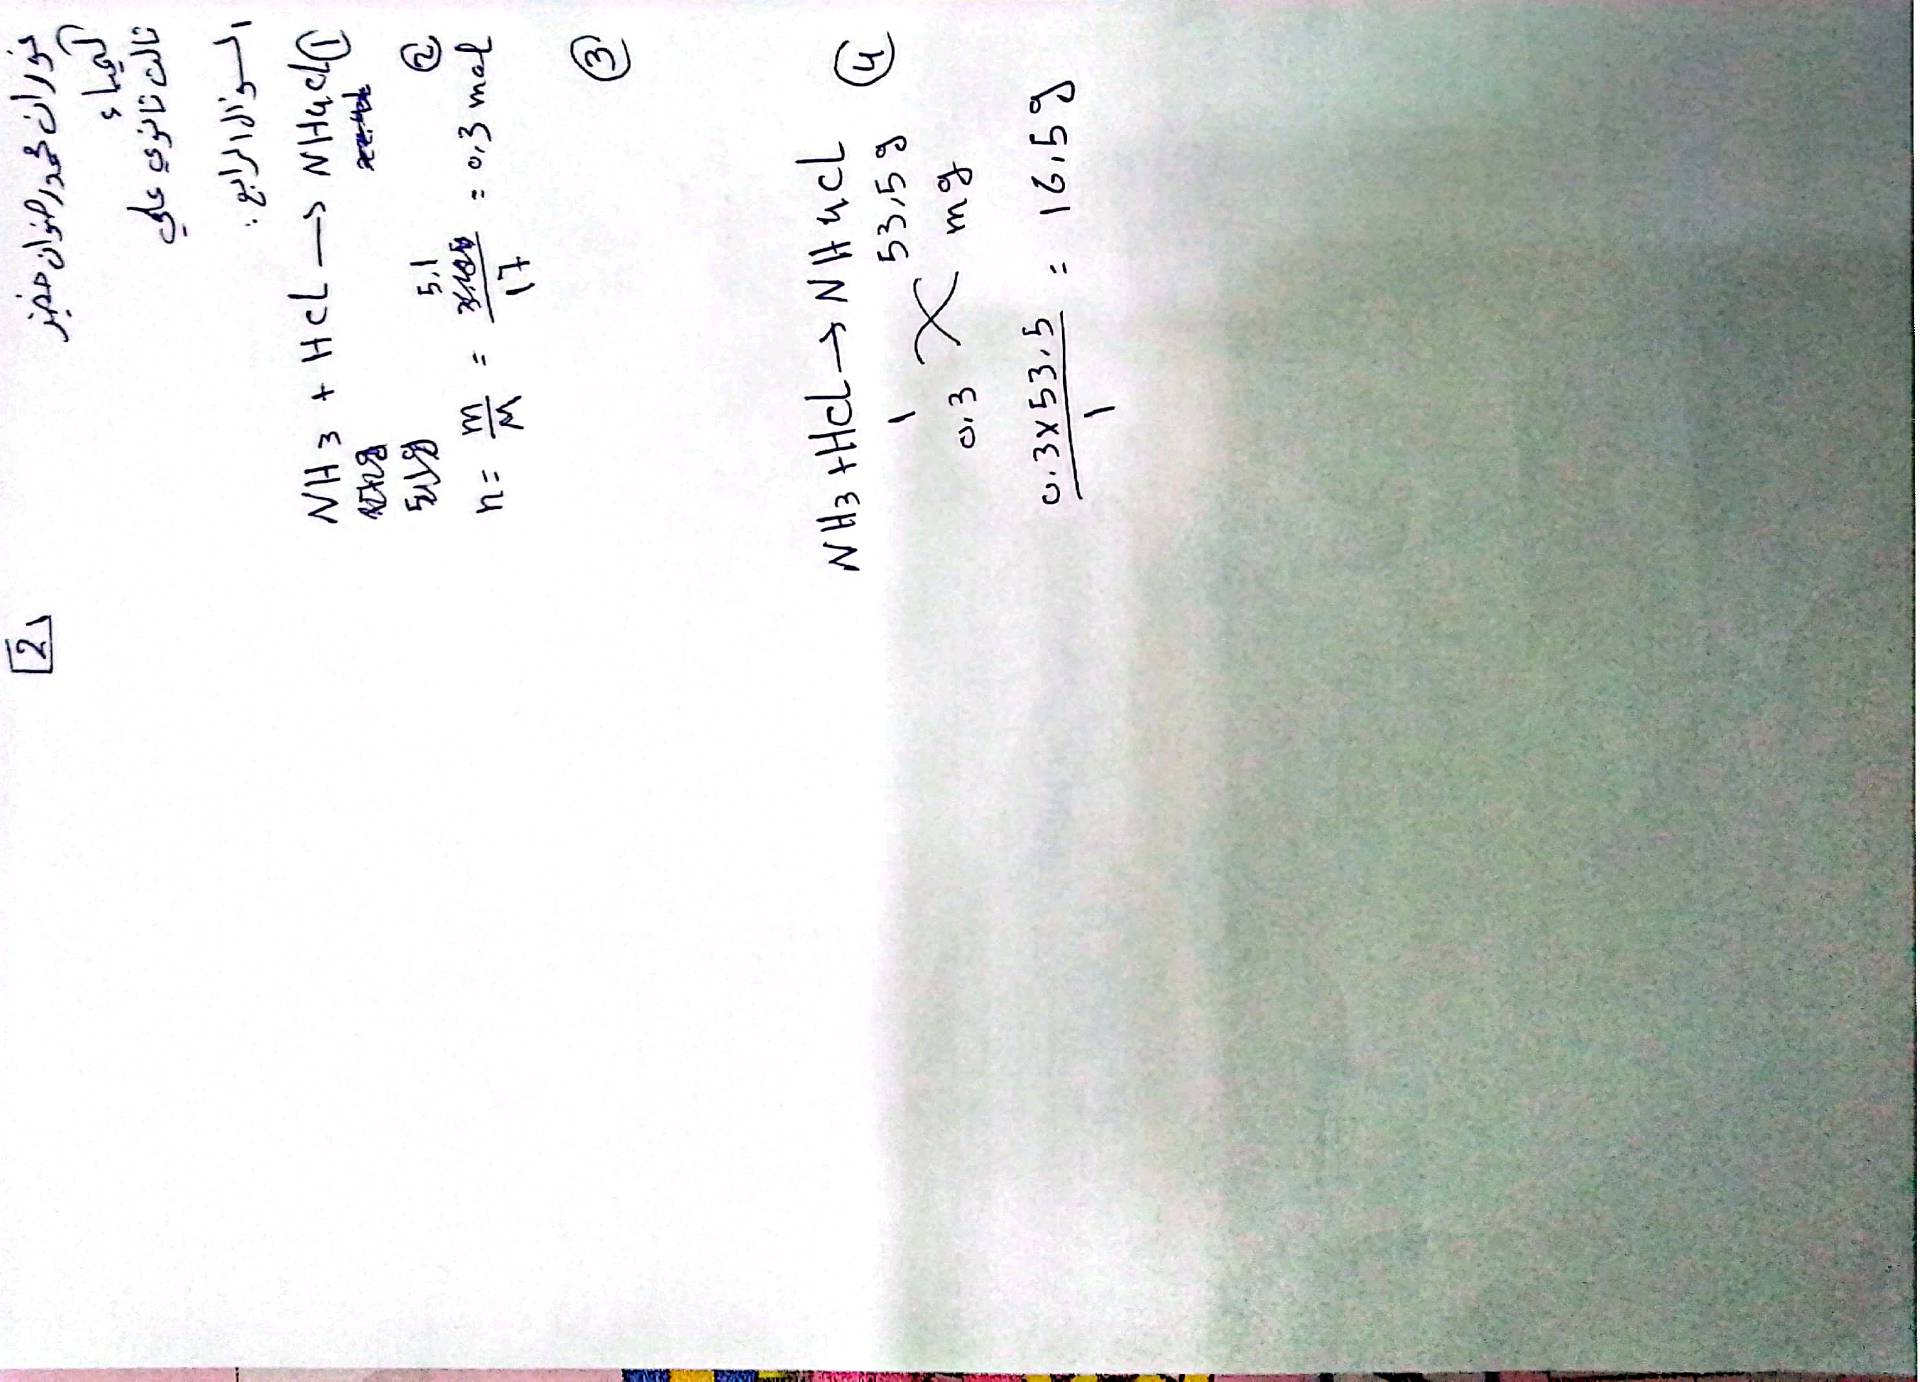 2
فوزان محمد رضوان خضير
كيمياء
ثالث ثانوي علمي
السؤال الرابع:
① NH3 + HCl → NH4Cl
5,1g
②
n = m/M = 5,1/17 = 0,3 mol
③
④ NH3 + HCl → NH4Cl
1 53,5g
0,3 mg
0,3x53,5/1 = 16,5g